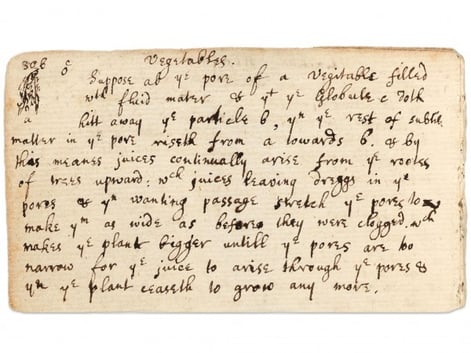 306 c Vegetables.
b Suppose ab yᵉ pore of a Vegitable filled
wᵗʰ fluid mater & yᵗ yᵉ Globule c doth
a hitt away yᵉ particle b, yⁿ yᵉ rest of subtile
matter in yᵉ pore riseth from a towards b. & by
this meanes juices continually arise from yᵉ roots
of trees upward: wᶜʰ juices leaving dreggs in yᵉ
pores & yⁿ wanting passage stretch yᵉ pores to
make yᵐ as wide as before they were clogged. wᶜʰ
makes yᵉ plant bigger untill yᵉ pores are too
narrow for yᵉ juice to arise through yᵉ pores &
yⁿ yᵉ plant ceaseth to grow any more.